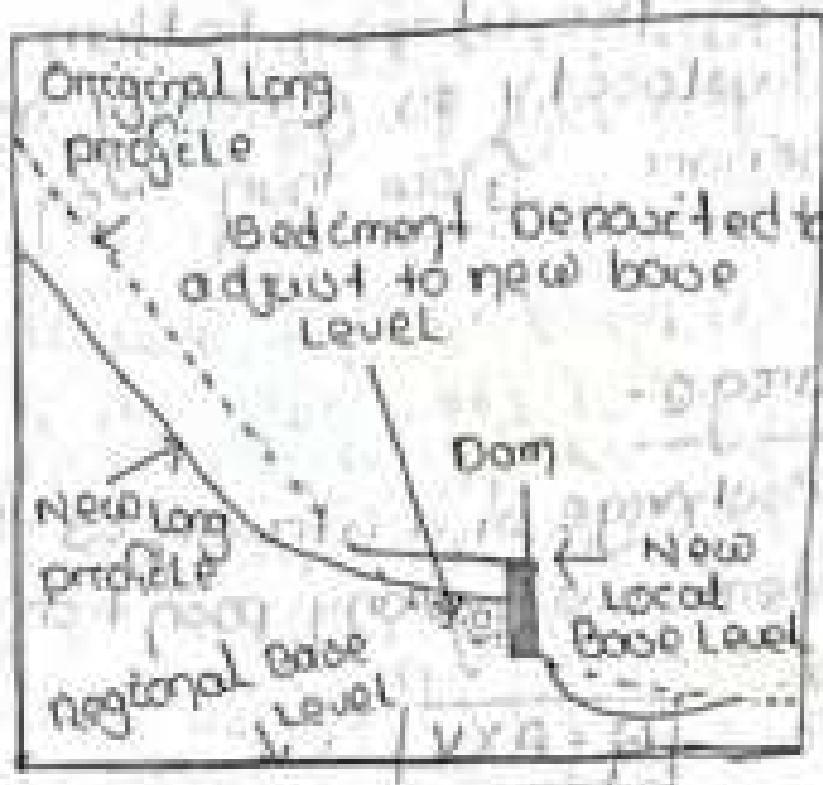 Original Long
profile
Sediment Deposited to
adjust to new base
Level
Dam
New Long
profile
New
Local
Base Level
Regional Base
Level